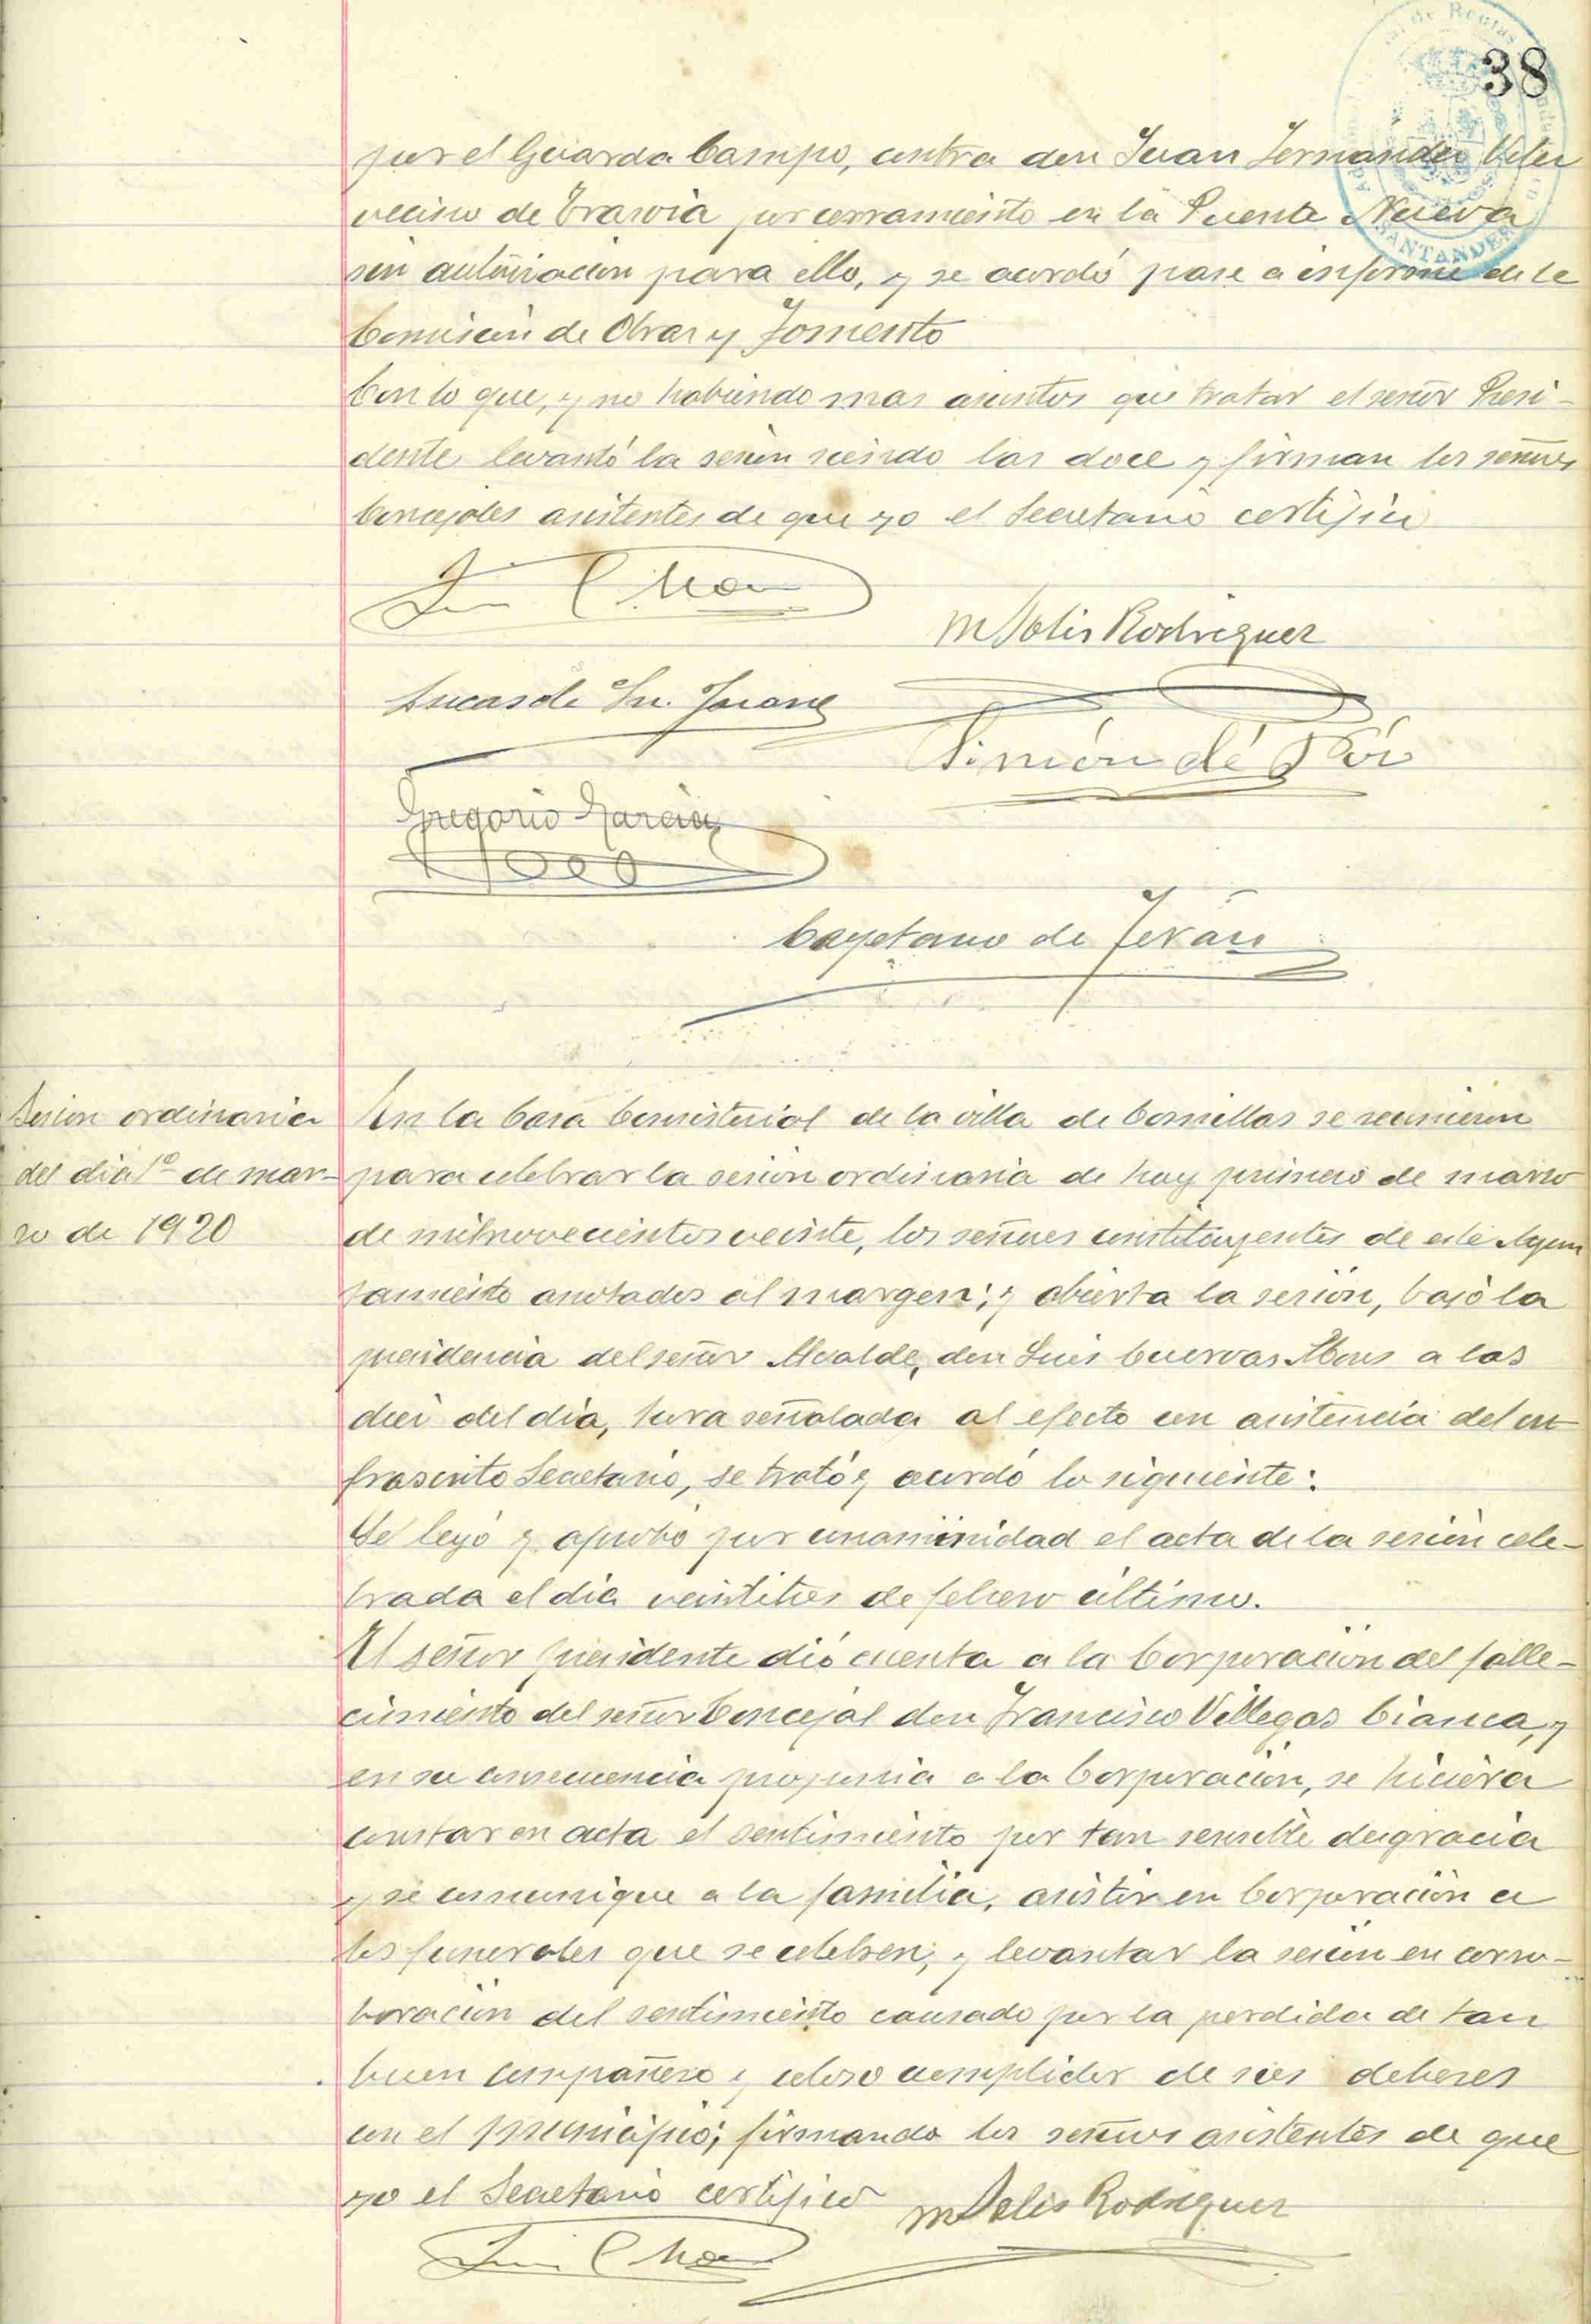 38
por el Guarda Campo, contra don Juan Fernández
vecino de Trasvia por cerramiento en la Puente Nueva
sin autorización para ello, y se acordó pase a informe de la
Comisión de Obras y Fomento
Con lo que, y no habiendo mas asuntos que tratar el señor Presi-
dente levantó la sesión siendo las doce y firman los señores
Concejales asistentes de que yo el Secretario certifico
M Solis Rodriguez
Lucas de
Simón de
Gregorio Garcia
Cayetano de Terán
Sesion ordinaria
del dia 1º de mar-
zo de 1920
En la Casa Consistorial de la villa de Comillas se reunieron
para celebrar la sesión ordinaria de hoy primero de marzo
de mil novecientos veinte, los señores constituyentes de este Ayun
tamiento anotados al margen; y abierta la sesión, bajo la
presidencia del señor Alcalde, don Luis Cuervas Mons a las
diez del día, hora señalada al efecto con asistencia del in-
frascrito Secretario, se trató y acordó lo siguiente:
Se leyó y aprobó por unanimidad el acta de la sesión cele-
brada el día veintitres de febrero último.
El señor presidente dió cuenta a la Corporación del falle-
cimiento del señor Concejal don Francisco Villegas Cianca, y
en su consecuencia proponia a la Corporación, se hiciera
constar en acta el sentimiento por tan sensible desgracia
y se comunique a la familia, asistir en Corporación a
los funerales que se celebren, y levantar la sesión en corro-
boración del sentimiento causado por la perdida de tan
buen compañero y celoso cumplidor de sus deberes
con el municipio; firmando los señores asistentes de que
yo el Secretario certifico
M Solis Rodriguez